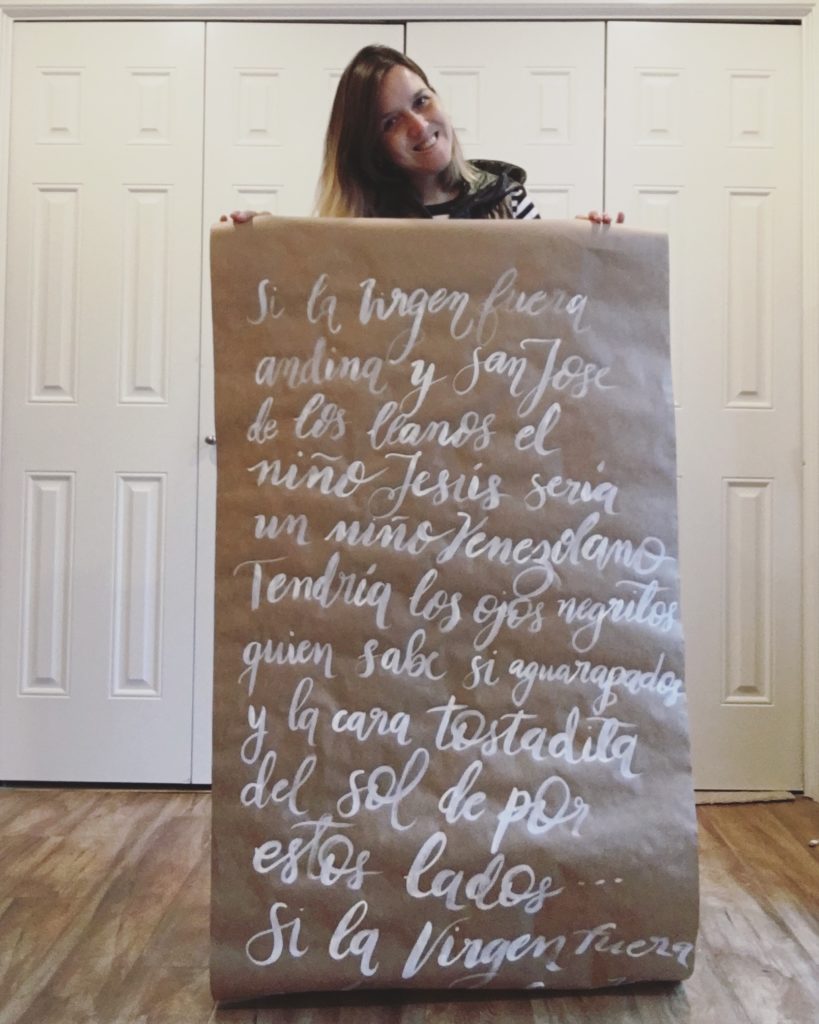 Si la Virgen fuera
andina y San Jose
de los llanos el
niño Jesús sería
un niño Venezolano
Tendría los ojos negritos
quien sabe si aguarapados
y la cara tostadita
del sol de por
estos lados...
Si la Virgen fuera